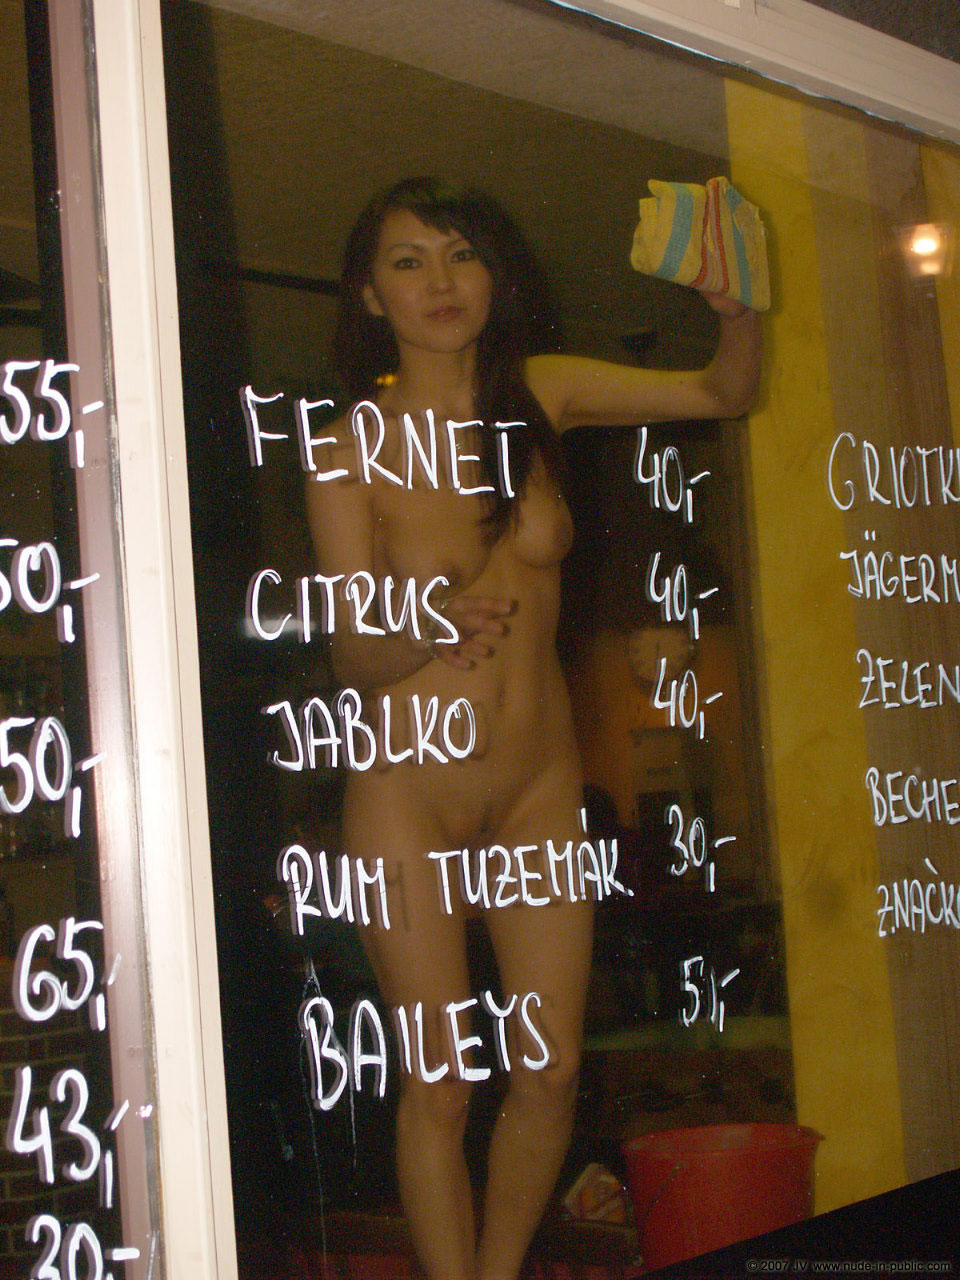 55,-
50,-
50,-
65,-
43,-
30,-
FERNET 40,-
CITRUS 40,-
JABLKO 40,-
RUM TUZEMÁK. 30,-
BAILEYS
GRIOTK
JÄGERM
ZELEN
BECHE
ZNAČKO
© 2007 JV www.nude-in-public.com